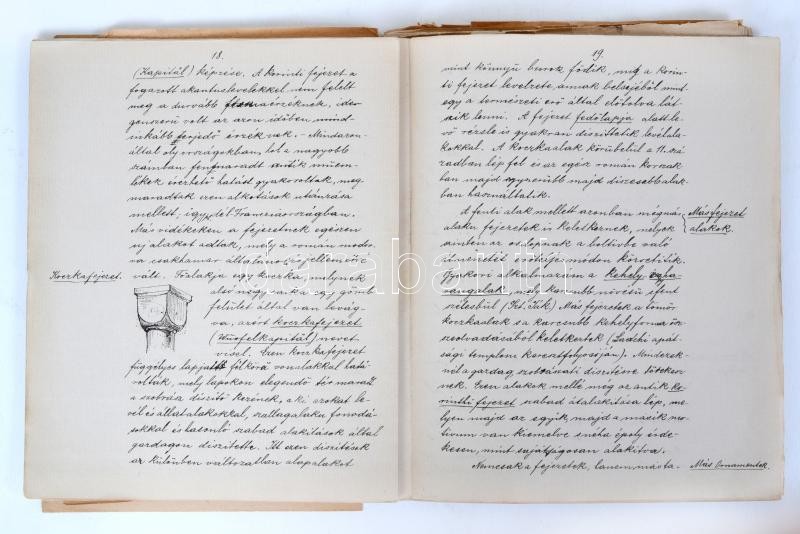 18.
(Kapitäl) képzése. A korinti fejezet a
fogazott akantuslevelekkel nem felelt
meg a durvább érzéknek, ide-
genszerű volt az azon időben mind-
inkább terjedő érzéknek. – Mindazon-
által oly országokban, hol a nagyobb
számban fennmaradt antik műem-
lékek érezhető hatást gyakoroltak, meg-
maradtak ezen alkotások utánzása
mellett; így dél Franciaországban.
Más vidékeken a fejezetnek egészen
új alakot adtak, mely a román modor-
ra csakhamar általános és jellemző
vált. Főalakja egy kocka, melynek
Koczkafejezet.
alsó nagy sarka egy gömb
felület által van levág-
va, azért koczkafejezet
(Würfelkapitäl) nevet
visel. Ezen koczkafejezet
függélyes lapjait félkörű vonalakkal hatá-
rolták, mely lapokon elegendő tér marad
a szobrász díszítő kezének, a ki azokat le-
vél és állatalakokkal, szallagalakú fonadé-
kokkal és hasonló szabad alakítások által
gazdagon díszítette. Itt ezen díszítések
az különben változatlan alapalakot
19.
mint könnyű burok födik, míg a korin-
ti fejezet levelzete, annak belsejéből mint-
egy a természeti erő által előtolva lát-
szik lenni. A fejezet fedőlapja alatt le-
vő részlet is gyakran díszíttetik levélala-
kokkal. A koczkaalak körülbelül a 11. szá-
zadban lép fel és az egész román korszak-
ban majd egyszerűbb majd díszesebb alak-
ban használtatik.
A fenti alak mellett azonban még más
Más fejezet
alakú fejezetek is keletkeznek, melyek
alakok.
amint az oszlopnak a boltívbe való
átmenetét módon közvetítik.
Gyakori alkalmazás a kehely
alak, mely karcsúbb növésű s fent
szélesbül (Kt. Ják) Más fejezetek a tömör
koczkaalak s a karcsúbb kehelyforma ösz-
szeolvadásából keletkeztek (Zsádáhi apát-
sági templom keresztfolyosóján). Mindezek-
nél a gazdag szobrászati díszítésre töreksz-
nek. Ezen alakok mellé még az antik ko-
rinthi fejezet szabad átalakítása lép, me-
lyen majd az egyik, majd a másik mo-
tívum van kiemelve s néha époly érde-
kesen, mint sajátságosan alakítva.
Nemcsak a fejezetek, hanem más ta-
Más Ornamentek.
darabanth